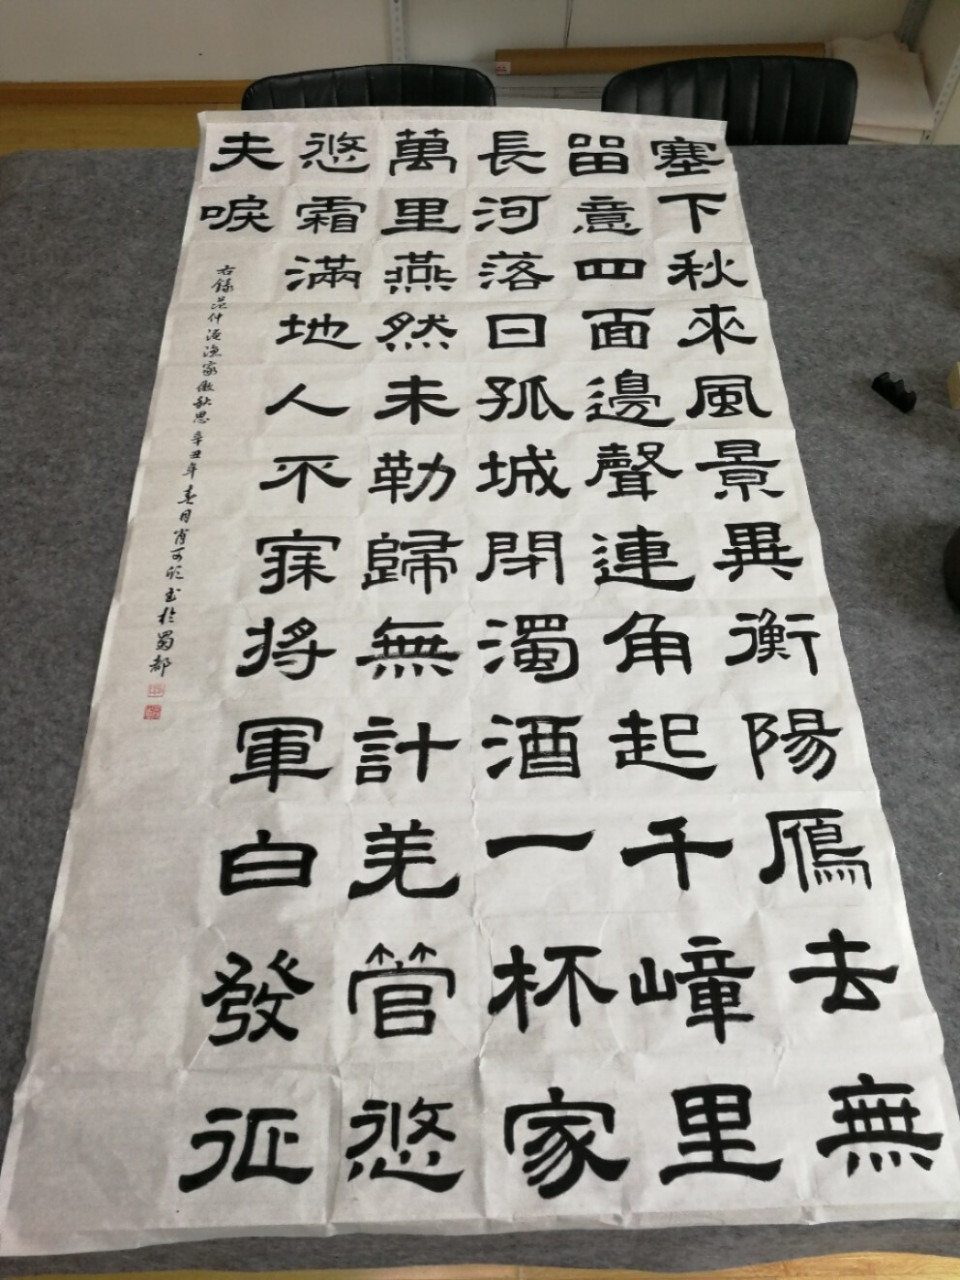 塞下秋來風景異衡陽鴈去無
留意四面邊聲連角起千嶂里
長河落日孤城閉濁酒一杯家
萬里燕然未勒歸無計羌管悠
悠霜滿地人不寐將軍白發征
夫唳
右錄范仲淹漁家傲秋思辛丑年春月肖可欣書於蜀都